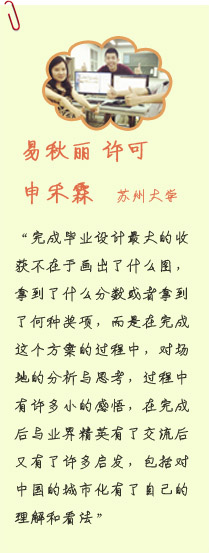 易秋丽 许可
申禾霖 苏州大学
“完成毕业设计最大的收
获不在于画出了什么图，
拿到了什么分数或者拿到
了何种奖项，而是在完成
这个方案的过程中，对场
地的分析与思考，过程中
有许多小的感悟，在完成
后与业界精英有了交流后
又有了许多启发，包括对
中国的城市化有了自己的
理解和看法”